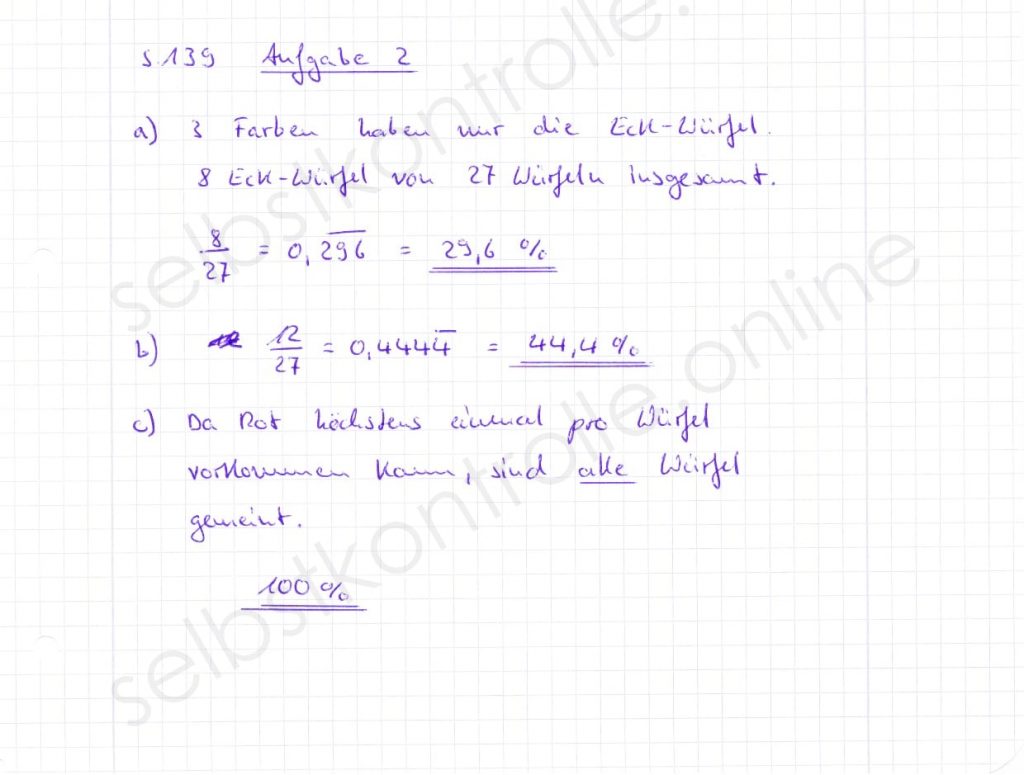 S.139 Aufgabe 2
a) 3 Farben haben nur die Eck-Würfel.
8 Eck-Würfel von 27 Würfeln insgesamt.
8/27 = 0,2̅9̅6̅ = 29,6 %
b) 12/27 = 0,4444̅ = 44,4 %
c) Da Rot höchstens einmal pro Würfel
vorkommen kann, sind alle Würfel
gemeint.
100 %
selbstkontrolle.online
selbstkontrolle.online